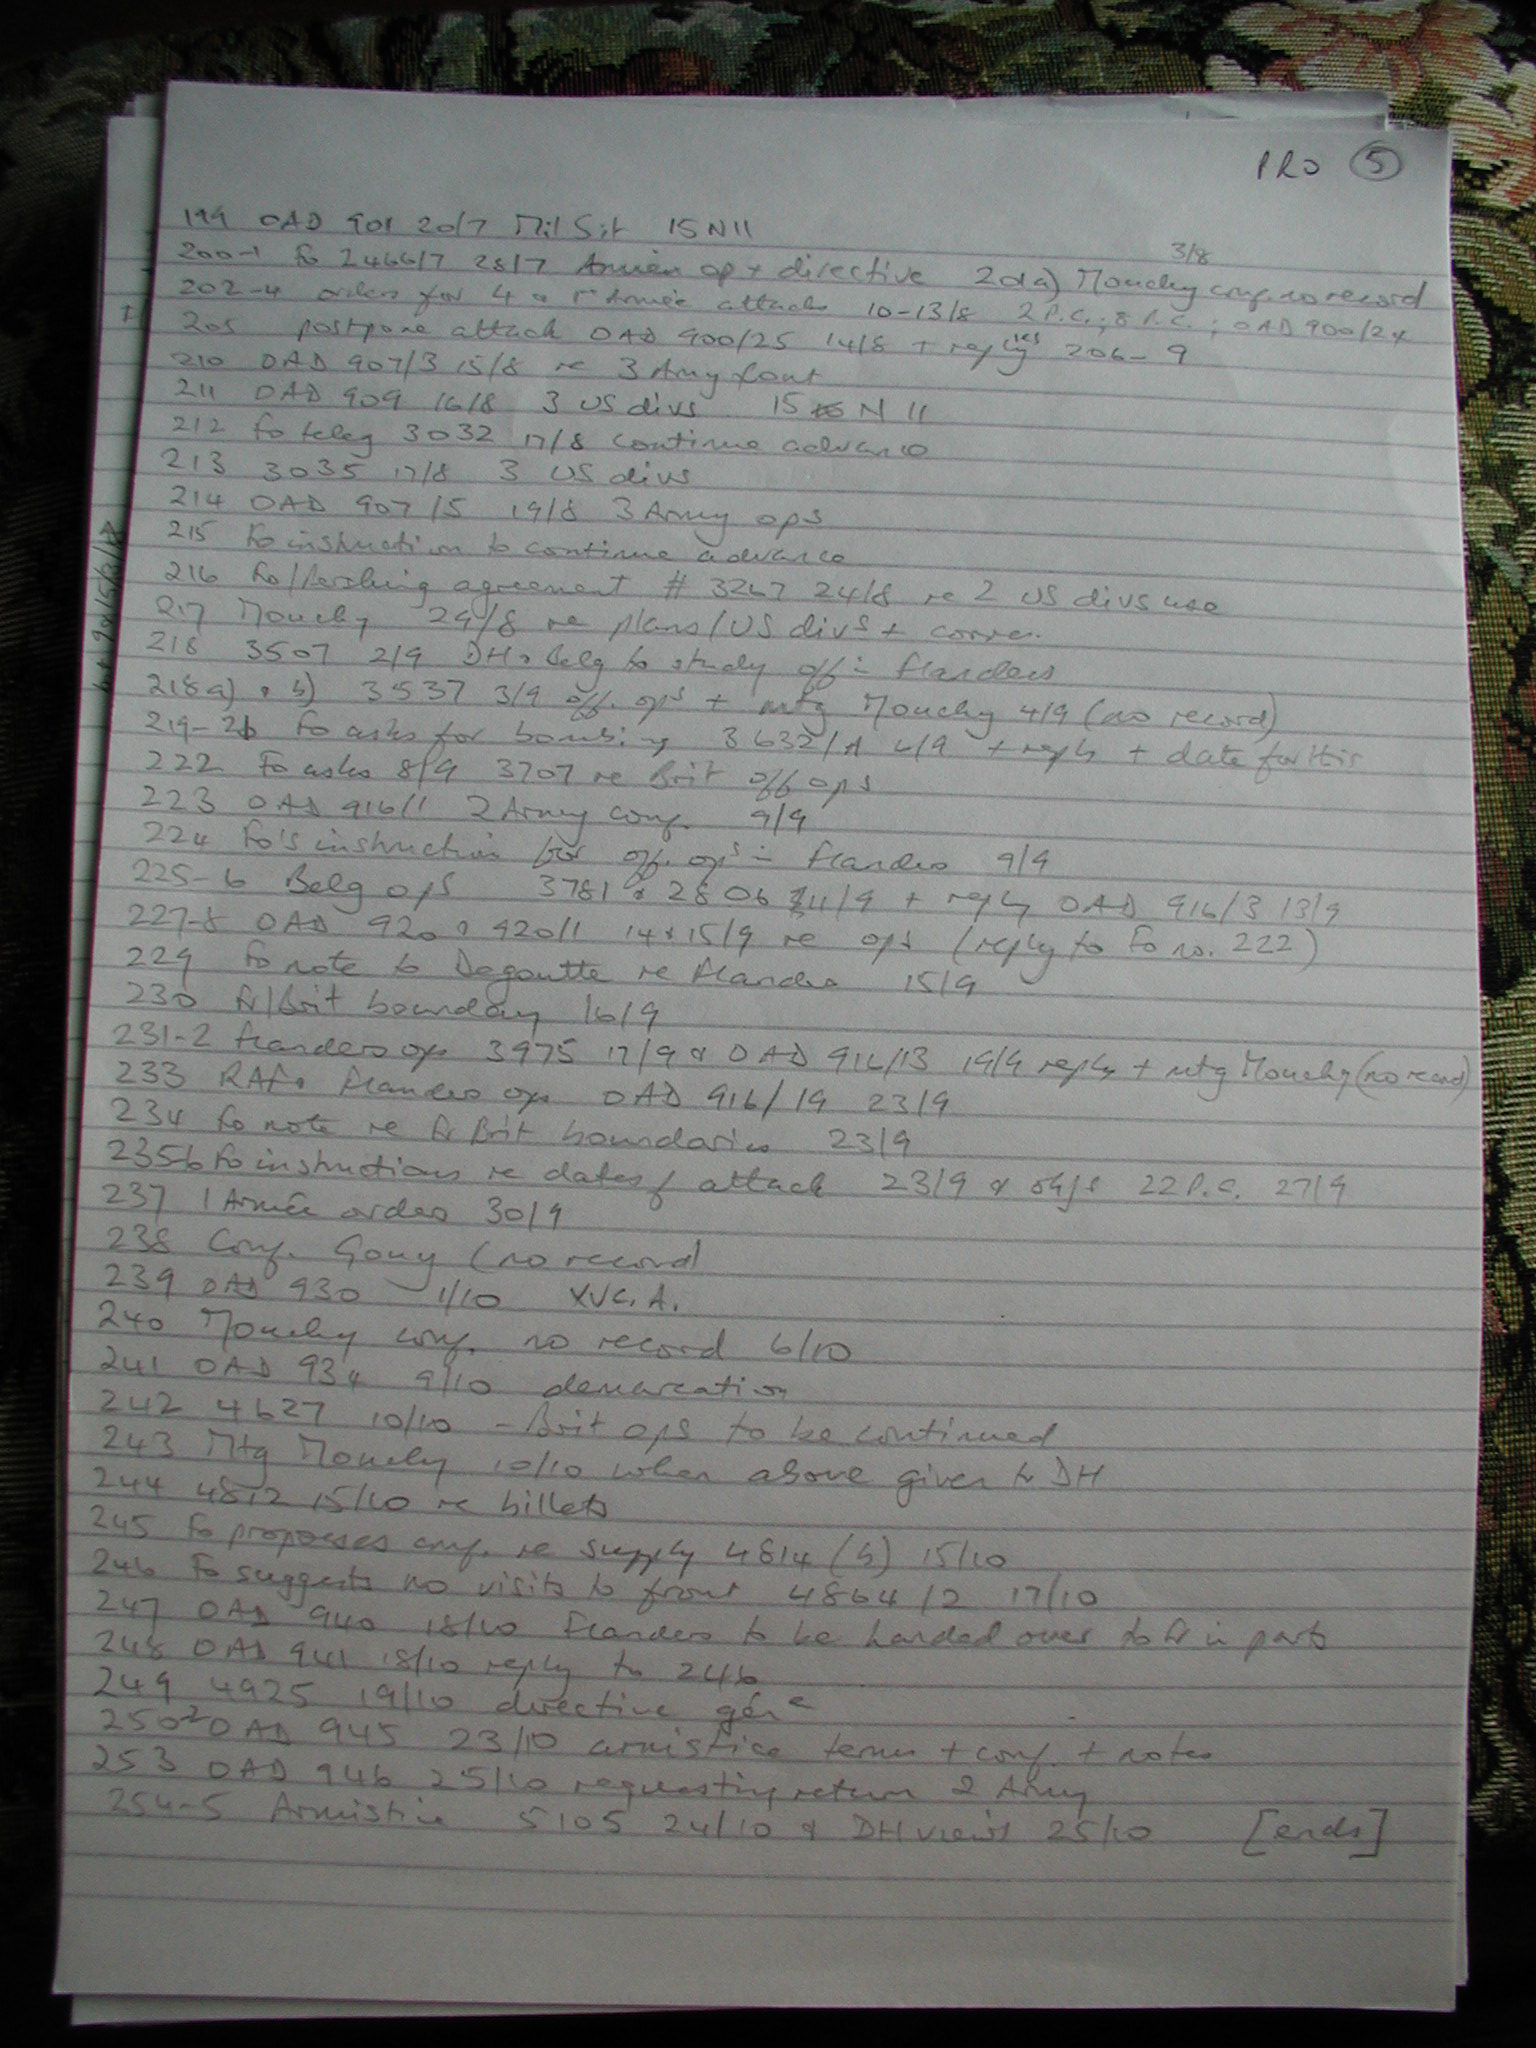 PRO 5
199 OAD 901 20/7 Mil Sit 15 N 11
3/8
200-1 Fo 2466/7 28/7 Amiens op + directive 201a) Mouchy conf. no record
202-4 orders for 4 & 1e Armée attacks 10-13/8 2 P.C.; 8 P.C.; OAD 900/24
205 postpone attack OAD 900/25 14/8 + replyies 206-9
210 OAD 907/3 15/8 re 3 Army front
211 OAD 909 16/8 3 US divs 15 N 11
212 Fo teleg 3032 17/8 continue advance
213 3035 17/8 3 US divs
214 OAD 907/5 19/8 3 Army ops
215 Fo instruction to continue advance
216 Fo/Pershing agreement # 3267 24/8 re 2 US divs use
217 Mouchy 29/8 re plans/US divs + corres.
218 3507 2/9 DH & Belg to study off in Flanders
218a) & b) 3537 3/9 off. ops + mtg Mouchy 4/9 (no record)
219-21 Fo asks for bombing 3632/A 6/9 + reply + date for this
222 Fo asks 8/9 3707 re Brit off ops
223 OAD 916/1 2 Army conf. 9/9
224 Fo's instruction for off. ops in Flanders 9/9
225-6 Belg ops 3781 & 2806 11/9 + reply OAD 916/3 13/9
227-8 OAD 920 & 920/1 14 & 15/9 re ops (reply to Fo no. 222)
229 Fo note to Degoutte re Flanders 15/9
230 Fr/Brit boundary 16/9
231-2 Flanders ops 3975 17/9 & OAD 916/13 19/9 reply + mtg Mouchy (no record)
233 RAF & Flanders ops OAD 916/19 23/9
234 Fo note re Fr Brit boundaries 23/9
235-6 Fo instructions re dates of attack 23/9 & objs 22 P.C. 27/9
237 1 Armée orders 30/9
238 Conf. Gouy (no record)
239 OAD 930 1/10 XV C.A.
240 Mouchy conf. no record 6/10
241 OAD 934 9/10 demarcation
242 4627 10/10 - Brit ops to be continued
243 Mtg Mouchy 10/10 when above given to DH
244 4812 15/10 re billets
245 Fo proposes conf. re supply 4814 (b) 15/10
246 Fo suggests no visits to front 4864/2 17/10
247 OAD 940 18/10 Flanders to be handed over to Fr in parts
248 OAD 941 18/10 reply to 246
249 4925 19/10 directive géne
250-2 OAD 945 23/10 armistice terms + conf. + notes
253 OAD 946 25/10 requesting return 2 Army
254-5 Armistice 5105 24/10 & DH views 25/10 [ends]